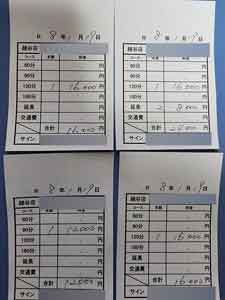 8年1月19日
越谷店
コース 本数 料金
60分 円
90分 円
120分 1 16,000円
180分 円
延長 円
交通費 円
合計 16,000円
サイン
8年1月19日
越谷店
コース 本数 料金
60分 円
90分 円
120分 1 16,000円
180分 円
延長 2 8,000円
交通費 円
合計 円
サイン
8年1月19日
越谷店
コース 本数 料金
60分 円
90分 1 12,000円
120分 円
180分 円
延長 円
交通費 円
合計 12,000円
サイン
8年1月19日
越谷店
コース 本数 料金
60分 円
90分 円
120分 1 16,000円
180分 円
延長 円
交通費 円
合計 16,000円
サイン